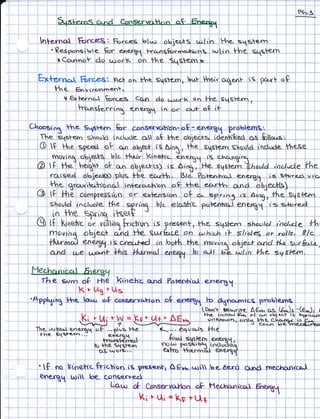 PG. 3
Systems and Conservation of Energy
Internal Forces: Forces b/w objects w/in the system
• Responsible for energy transformations w/in the system
* Cannot do work on the system *
External Forces: Act on the system, but their agent is part of
the Environment.
* External forces can do work on the system,
transferring energy in or out of it
Choosing the System for conservation of energy problems:
The system should include all of the objects identified as follows:
① If the speed of an object is Δing, the system should include these
moving objects b/c their kinetic energy is changing
② If the height of an object(s) is Δing, the system should include the
raised object(s) plus the earth. B/c Potential energy is stored via
the gravitational interaction of the earth and object(s)
③ If the compression or extension of a spring is Δing, the system
should include the spring b/c elastic potential energy is stored
in the spring itself
④ If kinetic or rolling friction is present, the system should include the
moving object and the surface on which it slides or rolls. B/c
thermal energy is created in both the moving object and the surface,
and we want this thermal energy to all be w/in the system.
Mechanical Energy
The sum of the kinetic and Potential energy
K + Ug + Us
• Applying the law of conservation of energy to dynamics problems
Ki + Ui + W = Kf + Uf + ΔEth
The initial energy of the system...
...plus the energy transferred to the system as work...
...equals the final system energy, now possibly including extra thermal energy
• If no kinetic friction is present, ΔEth will be zero and mechanical
energy will be conserved
Law of Conservation of Mechanical Energy
Ki + Ui = Kf + Uf